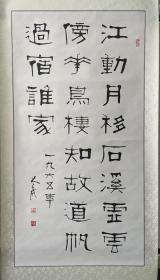 江動月移石溪虛雲
傍花鳥棲知故道帆
過宿誰家
一九六五年